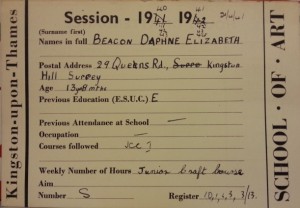 Kingston-upon-Thames
Session - 1941 1942
40 41
(Surname first)
Names in full BEACON DAPHNE ELIZABETH
Postal Address 29 Queens Rd., Surre Kingston
Hill Surrey
Age 13
Previous Education (E.S.U.C.) E
Previous Attendance at School —
Occupation —
Courses followed
Weekly Number of Hours Junior Craft Course
Aim
Number S Register
SCHOOL · OF · ART